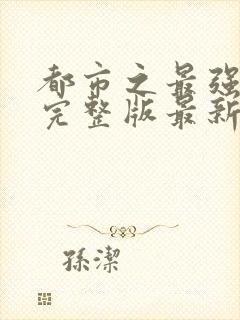 都市之最强
完整版最新
孫潔